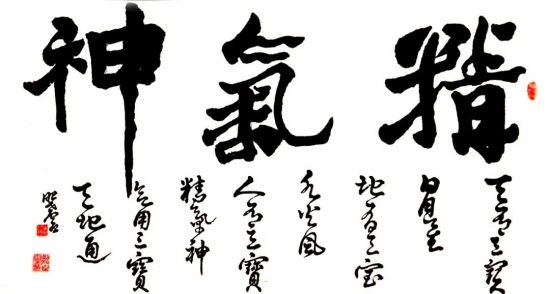 精氣神
天有三寶
日月星
地有三宝
水火風
人有三寶
精氣神
用三寶
天地通